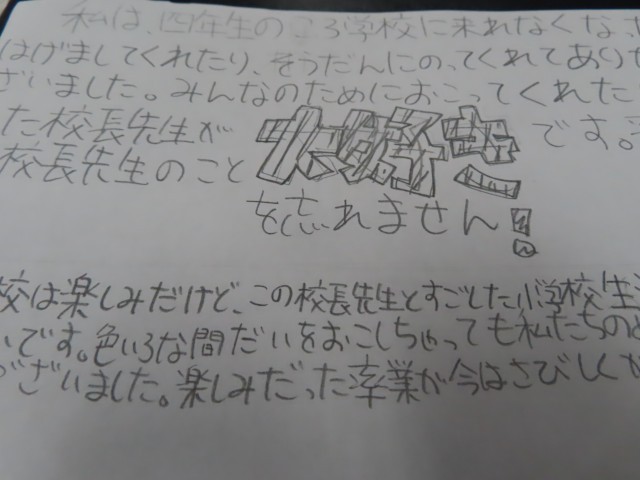 私は、四年生のころ学校に来れなくなっ
はげましてくれたり、そうだんにのってくれてありが
ざいました。みんなのためにおこってくれた
た校長先生が 大好き です。
校長先生のこと
を忘れません!
校は楽しみだけど、この校長先生とすごした小学校生
いです。色いろな間だいをおこしちゃっても私たちの
ございました。楽しみだった卒業が今はさびしくか